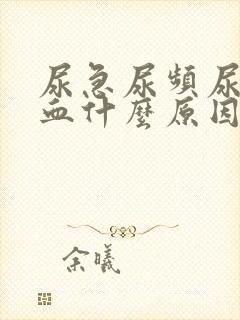 尿急尿頻尿
血什麼原因
余曦